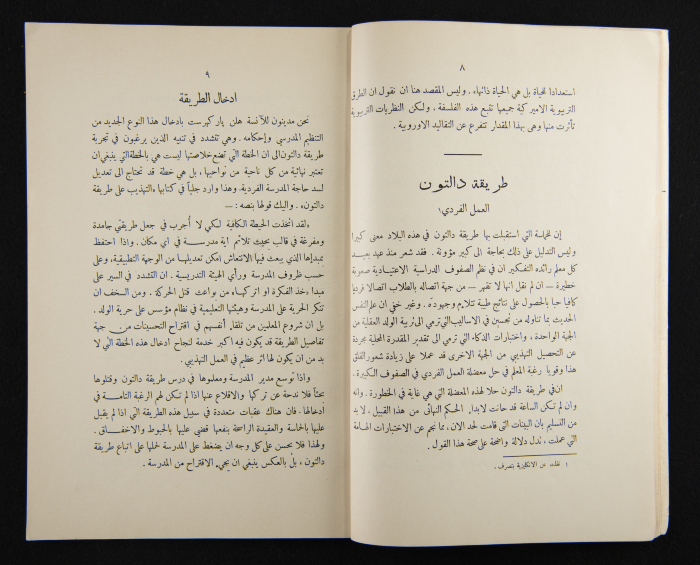 ٨
استعدادا للحياة بل هي الحياة ذاتها». وليس المقصد هنا ان نقول ان الطرق
التربيوية الاميركية جميعها تتبع هذه الفلسفة، ولكن النظريات التربيوية
تأثرت منها وهي بهذا المقدار تتفرع عن التقاليد الاوروبية.
طريقة دالتون
العمل الفردي١
إن للحماسة التي استقبلت بها طريقة دالتون في هذه البلاد معنى كبيرا
وليس التدليل على ذلك بحاجة الى كبير مؤونة. فقد شعر منذ عهد بعيد
كل معلم رائده التفكير ان في نظم الصفوف الدراسية الاعتيادية صعوبة
خطيرة — ان لم نقل انها لا تقهر — من جهة اتصاله بالطلاب اتصالا فرديا
كافيا حبا بالحصول على نتائج طيبة تلائم وجهوده. وغير خفي ان علم النفس
الحديث بما تناوله من تحسين في الاساليب التي ترمي الى تربية الولد العقلية من
الجهة الواحدة، واختبارات الذكاء التي ترمي الى تقدير المقدرة العقلية مجردة
عن التحصيل التهذيبي من الجهة الاخرى قد عملا على زيادة شعور القلق
هذا وقويا رغبة المعلم في حل معضلة العمل الفردي في الصفوف الكبيرة.
ان في طريقة دالتون حلا لهذه المعضلة التي هي غاية في الخطورة. وانه
وان لم تكن الساعة قد حانت لابداء الحكم النهائي من هذا القبيل، لا بد
من التسليم بان البينات التي قامت لحد الان، مما نجم عن الاختبارات الهامة
التي عملت، تدل دلالة واضحة على صحة هذا القول.
١ نقلت عن الانكليزية بتصرف.
٩
ادخال الطريقة
نحن مدينون للآنسة هلن باركهرست بادخال هذا النوع الجديد من
التنظيم المدرسي وإحكامه. وهي تتشدد في تنبيه الذين يرغبون في تجربة
طريقة دالتون الى ان الخطة التي تضع خلاصتها ليست هي بالخطة التي ينبغي ان
تعتبر نهائية من كل ناحية من نواحيها، بل هي خطة قد تحتاج الى تعديل
لسد حاجة المدرسة الفردية. وهذا وارد جلياً في كتابها «التهذيب على طريقة
دالتون». واليك قولها بنصه: —
«لقد اتخذت الحيطة الكافية لكي لا أجرب في جعل طريقتي جامدة
ومفرغة في قالب بحيث تلائم اية مدرسة في اي مكان. واذا احتفظ
بمبدإها الذي يبعث فيها الانتعاش امكن تعديلها من الوجهة التطبيقية، وعلى
حسب ظروف المدرسة ورأي الهيئة التدريسية. ان التشدد في السير على
مبدا «خذ الفكرة او اتركها» من بواعث قتل الحركة. ومن السخف ان
تنكر الحرية على المدرسة وهيئتها التعليمية في نظام مؤسس على حرية الولد.
بل ان شروع المعلمين من تلقاء أنفسهم في اقتراح التحسينات من جهة
تفاصيل الطريقة قد يكون فيه اكبر خدمة لنجاح ادخال هذه الخطة التي لا
بد من ان يكون لها اثر عظيم في العمل التهذيبي.
واذا توسع مدير المدرسة ومعلموها في درس طريقة دالتون وقتلوها
بحثاً فلا ندحة عن تركها والاقلاع عنها اذا لم تكن لهم الرغبة التامة في
ادخالها. فان هناك عقبات متعددة في سبيل هذه الطريقة التي اذا لم يقبل
عليها بالحماسة والعقيدة الراسخة بنفعها قضي عليها بالحبوط والاخفاق.
ولهذا فلا يحسن على كل وجه ان يضغط على المدرسة لحملها على اتباع طريقة
دالتون، بل بالعكس ينبغي ان يجيء الاقتراح من المدرسة.